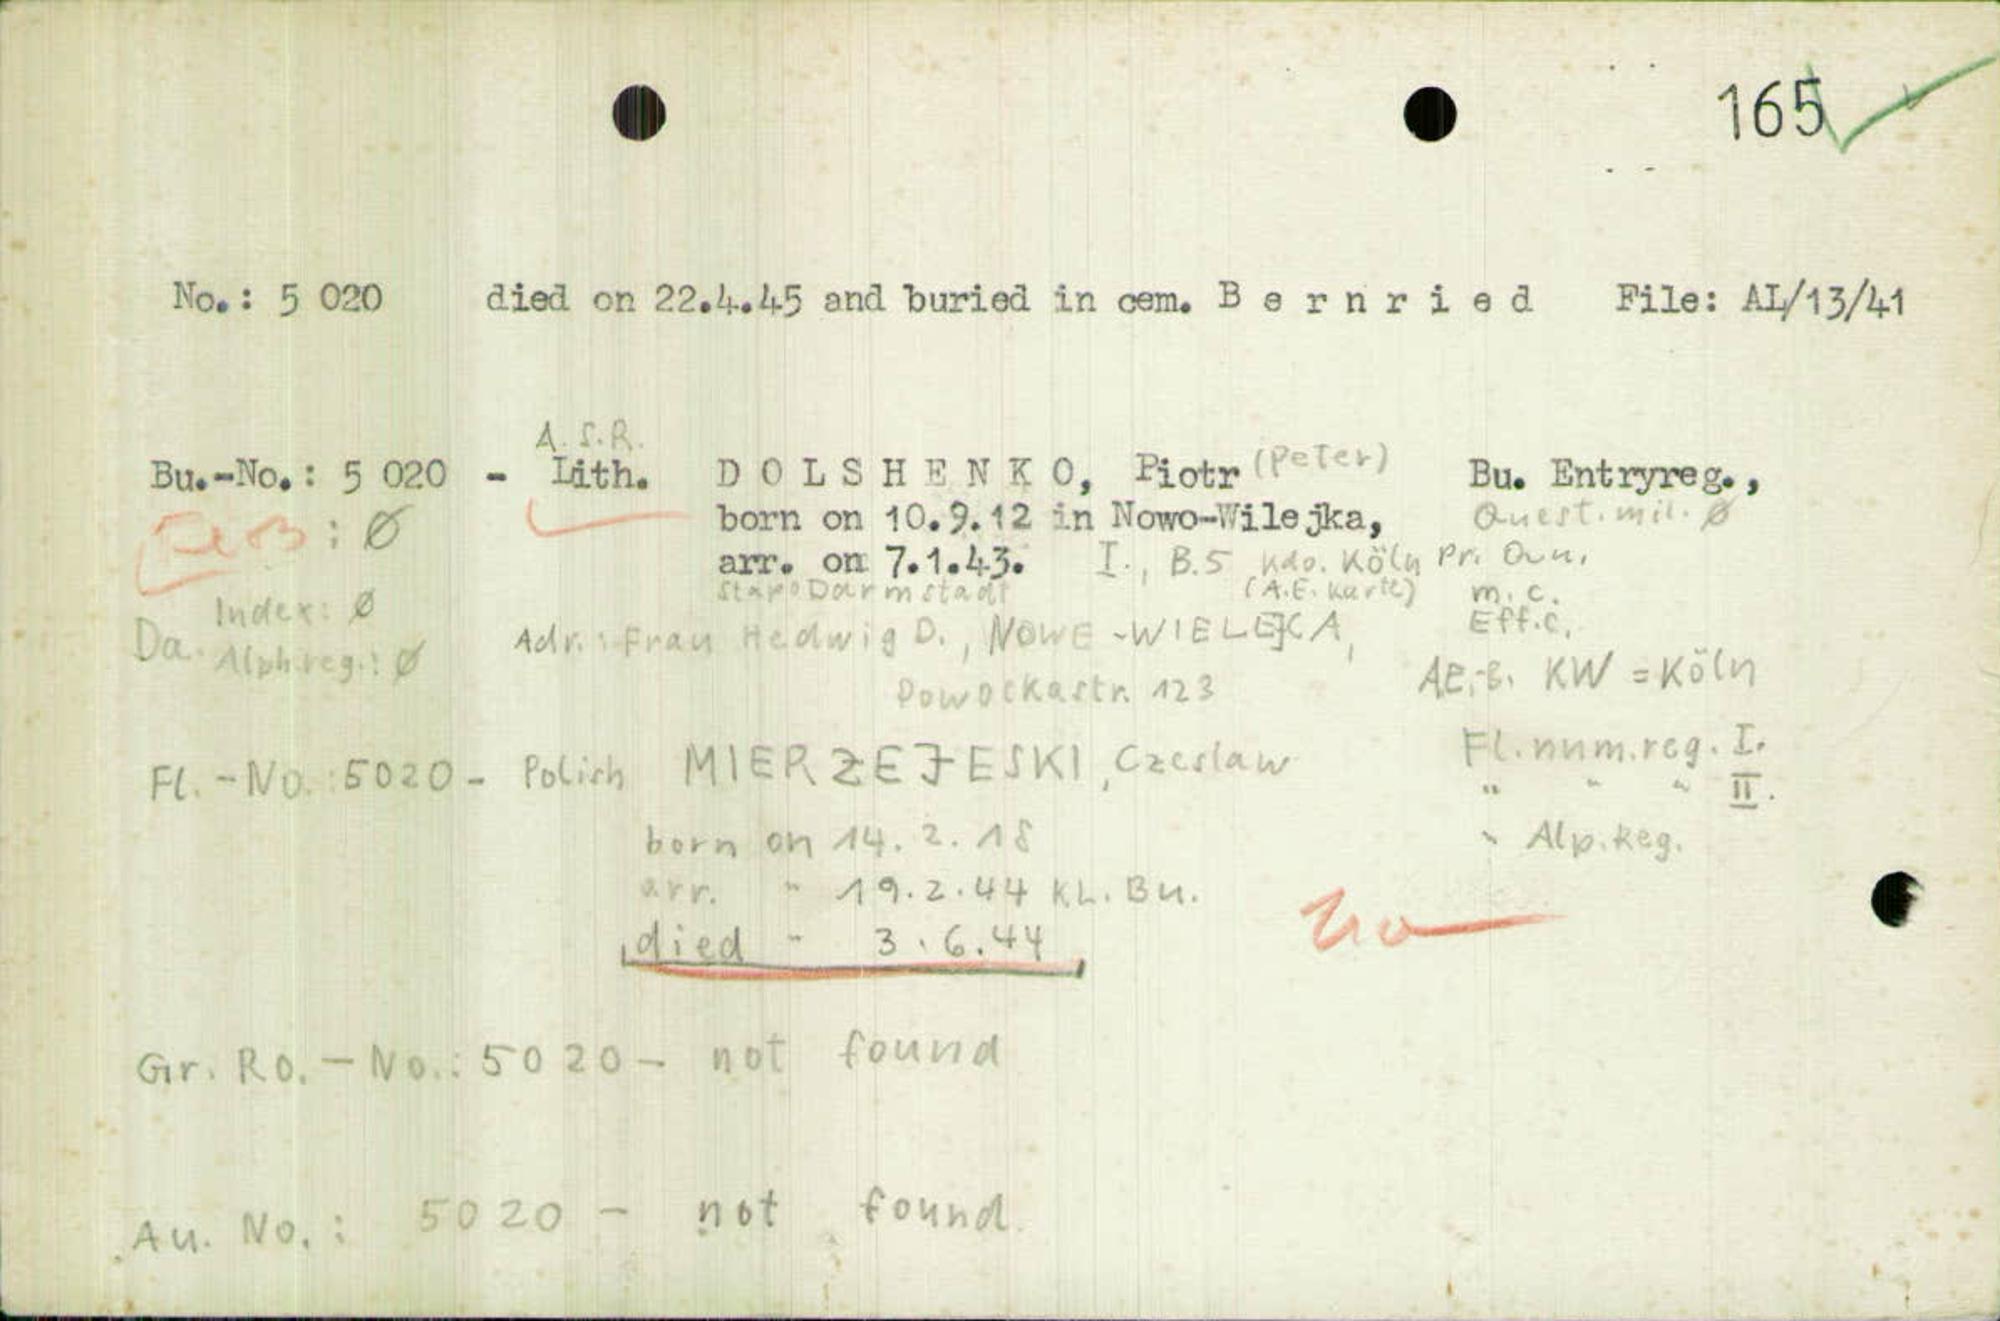 165
No.: 5 020 died on 22.4.45 and buried in cem. B e r n r i e d File: AL/13/41
A.S.R.
Bu.-No.: 5 020 - Lith. D O L S H E N K O, Piotr (Peter) Bu. Entryreg.,
: Ø born on 10.9.12 in Nowo-Wilejka, Quest. mil. Ø
arr. on 7.1.43. I., B.5 Kdo. Köln Pr. Qun.
Stapo Darmstadt (A.E. Karte) m. c.
Index: Ø Eff.c.
Da. Alph.reg.: Ø Adr.: Frau Hedwig D., NOWE-WIELEJCA,
123 KW = Köln
Fl.-No.: 5020 - Polish MIERZEJESKI, Czeslaw Fl. num.reg. I.
" " " II.
born on 14. 2. 18 " Alp. Reg.
arr. " 19.2.44 KL. Bu.
died " 3.6.44 no
Gr. Ro. - No.: 5020 - not found
Au. No.: 5020 - not found.